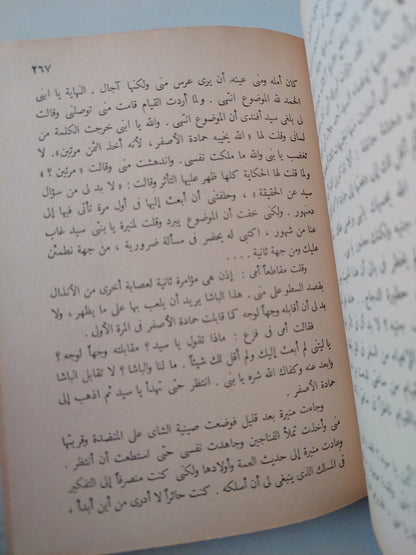 ٢٦٧
كان أمله ومنى عينه أن يرى عرس منى ولكنها آجال . النهاية يا ابنى
الحمد لله الموضوع انتهى . ولما أردت القيام قامت منى توصلنى وقالت
لى بلغى سيد أفندى أن الموضوع انتهى . والله يا ابنى خرجت الكلمة من
لسانى وقلت لها « الله يخيبه حمادة الأصفر ، لأنه أخذ الثمن مرتين». لا
تغضب يا بنى والله ما ملكت نفسى . واندهشت منى وقالت « مرتين ؟ »
ولما قلت لها الحكاية كلها ظهر عليها التأثر وقالت : « لا بد لى من سؤال
سيد عن الحقيقة » ، وحلفتنى أن أبعث إليها فى أول مرة تأتى فيها إلى
دمنهور . ولكنى خفت أن الموضوع يبرد وقلت لمنيرة يا بنتى سيد غاب
عنا من شهور ، اكتبى له يحضر فى مسألة ضرورية ، من جهة نطمئن
عليك ومن جهة ثانية . . . .
وقلت مقاطعاً أمى : إذن هى مؤامرة ثانية لعصابة أخرى من الأنذال
بقصد السطو على منى . هذا الباشا يريد أن يلعب بها على ما يظهر ، ولا
بد لى أن أقابله وجهاً لوجه كما قابلت حمادة الأصفر فى المرة الأولى .
فقالت أمى فى فزع : ماذا تقول يا سيد ؟ مقابلته وجهاً لوجه ؟
يا ليتنى لم أبعث إليك ولم أقل لك شيئاً . ما لنا والباشا ؟ لا تقابل الباشا
وابعد عنه وكفاك الله شره يا بنى . انتظر حتى تهدأ يا سيد ثم اذهب إلى
حمادة الأصفر .
وجاءت منيرة بعد قليل فوضعت صينية الشاى على المنضدة وقربتها
منى وأخذت تملأ الفناجين وجاهدت نفسى حتى استطعت أن أنتظر .
وعادت منيرة إلى حديث العمة وأولادها ولكنى كنت منصرفاً إلى التفكير
فى المسلك الذى ينبغى لى أن أسلكه . كنت حائراً لا أدرى من أين أبدأ ،